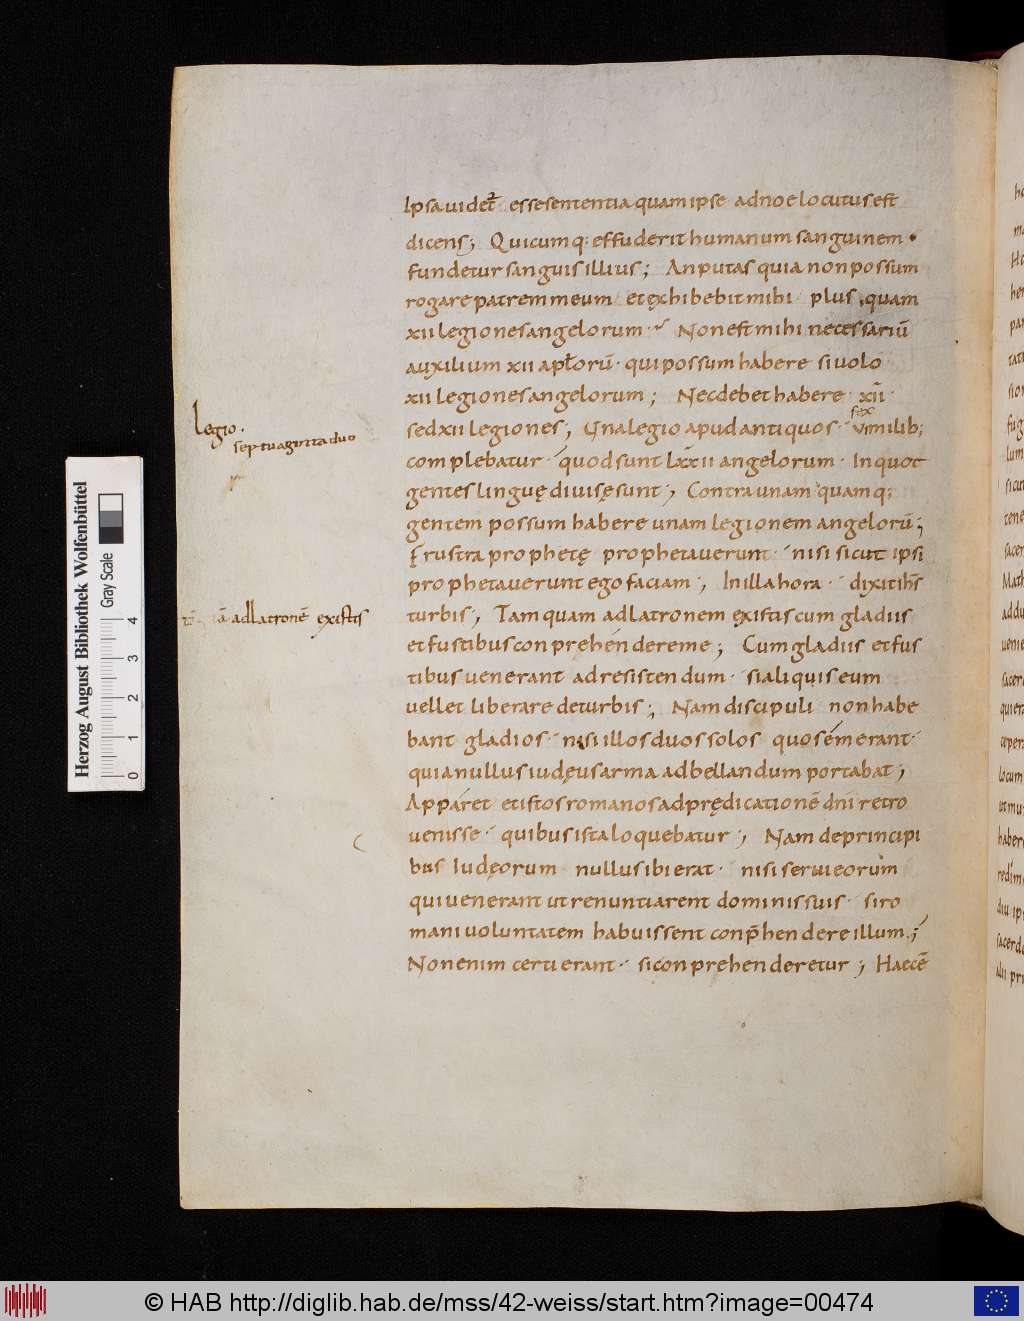 Ipsa uidet̅ esse sententia quam ipse ad noe locutus est
dicens; Quicumq: effuderit humanum sanguinem ·
fundetur sanguis illius; An putas quia non possum
rogare patrem meum et ęxhibebit mihi plus quam
xii legiones angelorum · Non est mihi necessariū
auxilium xii apt̅orū · qui possum habere si uolo
xii legiones angelorum; Nec debet habere · xii̅ ·
sex
sed xii legiones; Una legio apud antiquos · vi milib;
complebatur · quod sunt lxxii angelorum · In quot
gentes linguę diuisę sunt, Contra unam quamq;
gentem possum habere unam legionem angelorū;
Frustra prophetę prophetauerunt · nisi sicut ipsi
prophetauerunt ego faciam, In illa hora · dixit ih̅s
turbis, Tam quam ad latronem ęxistis cum gladiis
et fustibus conpręhendere me; Cum gladiis et fus
tibus uenerant ad resistendum · si aliquis eum
uellet liberare de turbis; Nam discipuli non habe
bant gladios · nisi illos duos solos quos emerant ·
quia nullus iudęus arma ad bellandum portabat,
Apparet et istos romanos ad prędicationē dn̅i retro
uenisse · quibus ista loquebatur, Nam de principi
bus Iudęorum nullus ibi erat · nisi serui eorum
qui uenerant ut renuntiarent dominis suis · si ro
mani uoluntatem habuissent conp̅hendere illum;
Non enim certi erant · si conprehenderetur, Haec ē
Legio ·
septuaginta duo
ad latronē existis
Herzog August Bibliothek Wolfenbüttel
Gray Scale
0 1 2 3 4
© HAB http://diglib.hab.de/mss/42-weiss/start.htm?image=00474